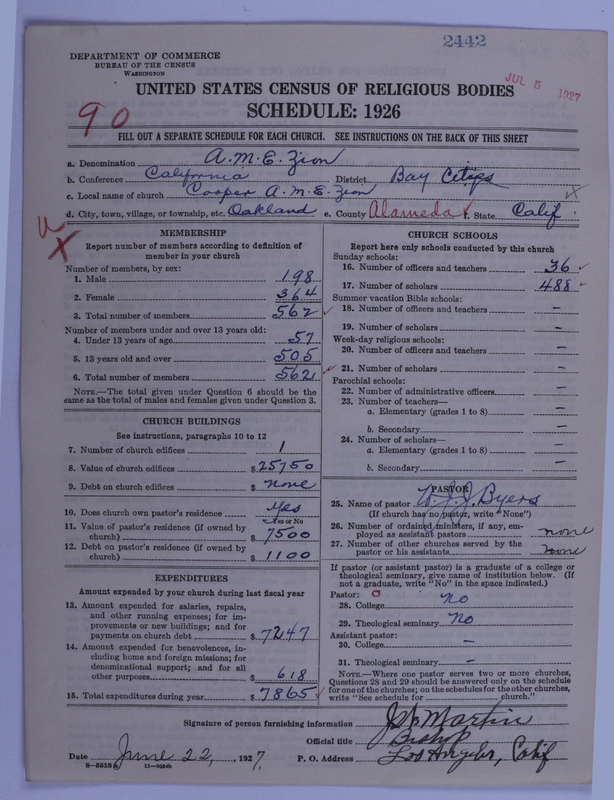 2442
DEPARTMENT OF COMMERCE
BUREAU OF THE CENSUS
WASHINGTON
JUL 5 1927
UNITED STATES CENSUS OF RELIGIOUS BODIES
SCHEDULE: 1926
90
FILL OUT A SEPARATE SCHEDULE FOR EACH CHURCH. SEE INSTRUCTIONS ON THE BACK OF THIS SHEET
a. Denomination A.M.E. Zion
b. Conference California District Bay Cities
c. Local name of church Cooper A.M.E. Zion
d. City, town, village, or township, etc. Oakland e. County Alameda f. State Calif.
MEMBERSHIP
Report number of members according to definition of
member in your church
Number of members, by sex:
1. Male 198
2. Female 364
3. Total number of members 562
Number of members under and over 13 years old:
4. Under 13 years of age 57
5. 13 years old and over 505
6. Total number of members 562
NOTE.—The total given under Question 6 should be the
same as the total of males and females given under Question 3.
CHURCH BUILDINGS
See instructions, paragraphs 10 to 12
7. Number of church edifices 1
8. Value of church edifices $25750
9. Debt on church edifices $ none
10. Does church own pastor's residence Yes
Yes or No
11. Value of pastor's residence (if owned by
church) $7500
12. Debt on pastor's residence (if owned by
church) $1100
EXPENDITURES
Amount expended by your church during last fiscal year
13. Amount expended for salaries, repairs,
and other running expenses; for im-
provements or new buildings; and for
payments on church debt $7247
14. Amount expended for benevolences, in-
cluding home and foreign missions; for
denominational support; and for all
other purposes $618
15. Total expenditures during year $7865
CHURCH SCHOOLS
Report here only schools conducted by this church
Sunday schools:
16. Number of officers and teachers 36
17. Number of scholars 488
Summer vacation Bible schools:
18. Number of officers and teachers –
19. Number of scholars –
Week-day religious schools:
20. Number of officers and teachers –
21. Number of scholars –
Parochial schools:
22. Number of administrative officers –
23. Number of teachers—
a. Elementary (grades 1 to 8) –
b. Secondary –
24. Number of scholars—
a. Elementary (grades 1 to 8) –
b. Secondary –
PASTOR
25. Name of pastor W.J.J. Byers
(If church has no pastor, write "None")
26. Number of ordained ministers, if any, em-
ployed as assistant pastors none
27. Number of other churches served by the
pastor or his assistants none
If pastor (or assistant pastor) is a graduate of a college or
theological seminary, give name of institution below. (If
not a graduate, write "No" in the space indicated.)
Pastor:
28. College no
29. Theological seminary no
Assistant pastor:
30. College –
31. Theological seminary –
NOTE.—Where one pastor serves two or more churches,
Questions 28 and 29 should be answered only on the schedule
for one of the churches; on the schedules for the other churches,
write "See schedule for church."
Signature of person furnishing information J W Martin
Official title Bishop
Date June 22, 1927. P. O. Address Los Angeles, Calif
8—5518 11—9034b